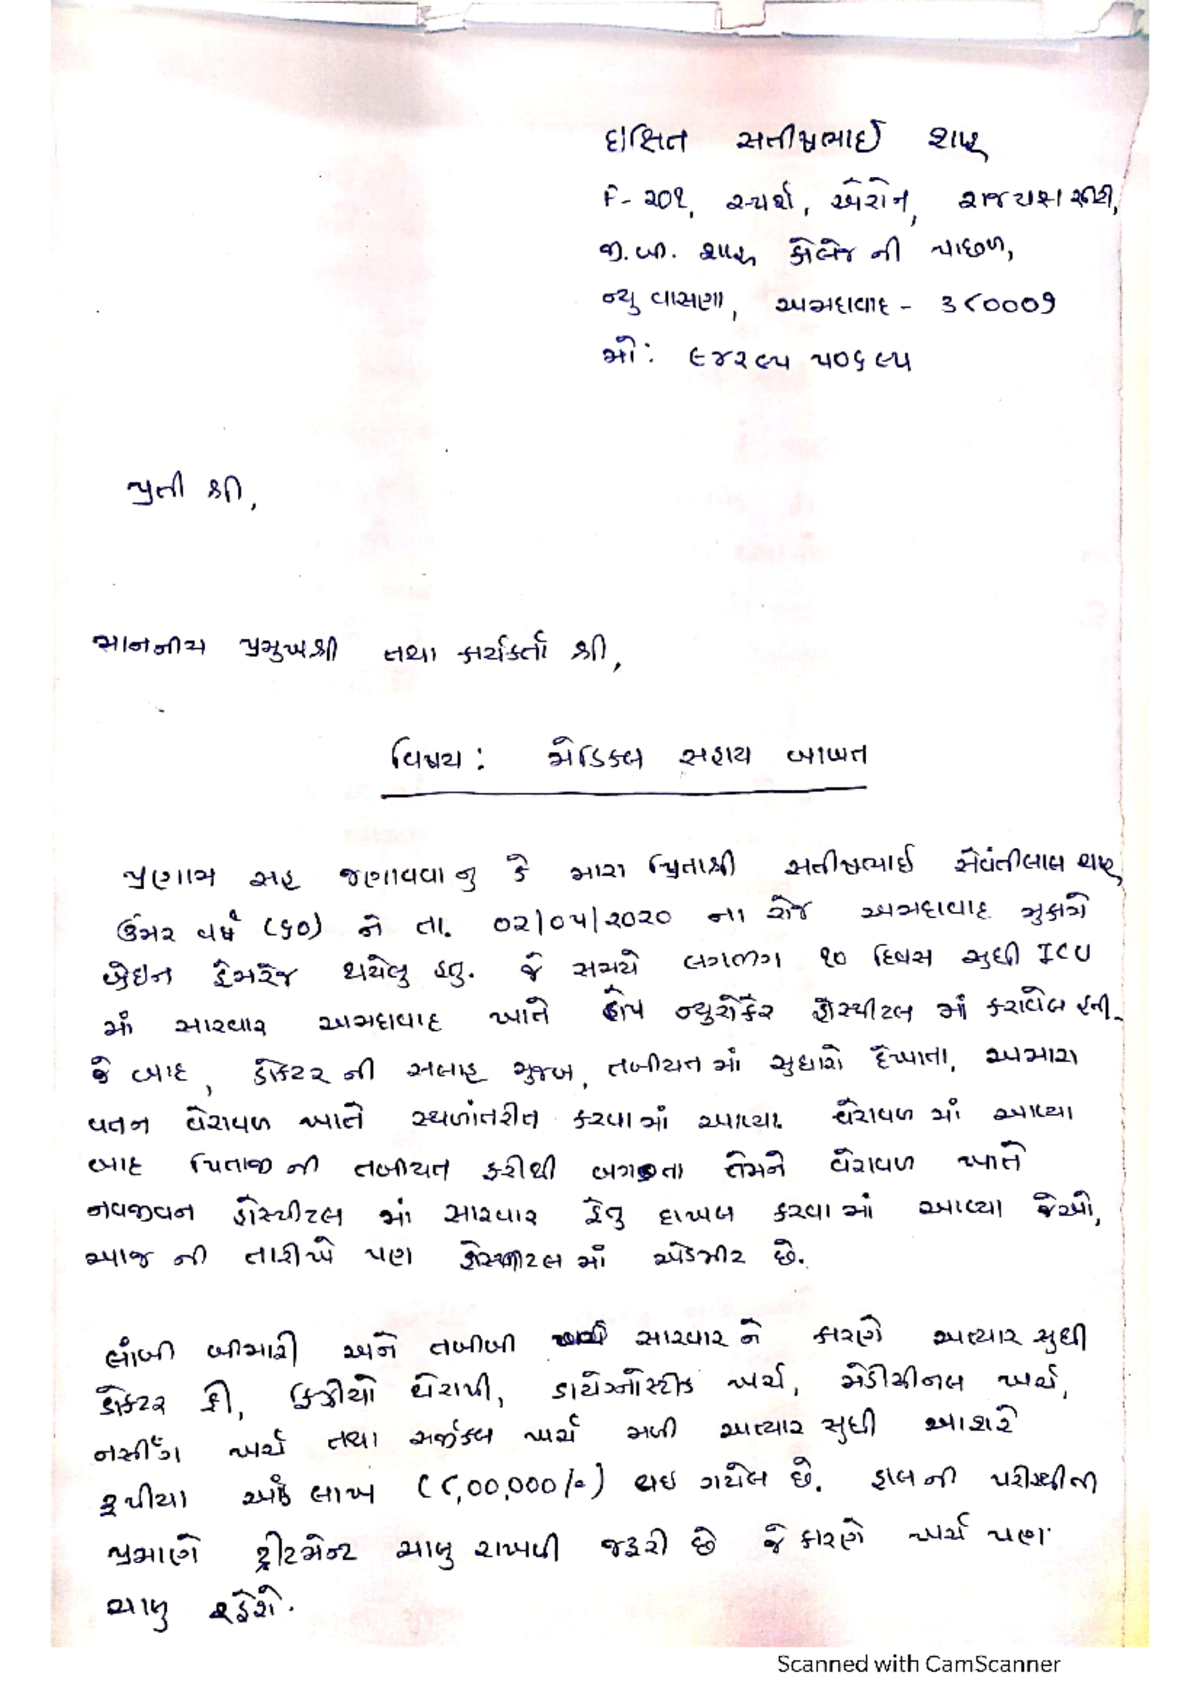 દીક્ષિત સતીષભાઈ શાહ
F-૨૦૧, સ્પર્શ, એરોન, રાજયશ સીટી,
જી.બી. શાહ કોલેજ ની પાછળ,
ન્યુ વાસણા, અમદાવાદ - ૩૮૦૦૦૭
મો: ૯૪૨૯૫ ૫૦૬૯૫
પ્રતી શ્રી,
માનનીય પ્રમુખશ્રી તથા કાર્યકર્તા શ્રી,
વિષય: મેડિકલ સહાય બાબત
પ્રણામ સહ જણાવવાનુ કે મારા પિતાશ્રી સતીષભાઈ સેવંતીલાલ શાહ,
ઉંમર વર્ષ (૬૦) ને તા. ૦૨/૦૫/૨૦૨૦ ના રોજ અમદાવાદ મુકામે
બ્રેઇન હેમરેજ થયેલુ હતુ. જે સમયે લગભગ ૧૦ દિવસ સુધી ICU
માં સારવાર અમદાવાદ ખાતે હોપ ન્યુરોકેર હોસ્પીટલ માં કરાવેલ હતી.
જે બાદ, ડોક્ટર ની સલાહ મુજબ, તબીયત માં સુધારો દેખાતા, અમારા
વતન વેરાવળ ખાતે સ્થળાંતરીત કરવામાં આવ્યા. વેરાવળ માં આવ્યા
બાદ પિતાજી ની તબીયત ફરીથી બગડતા તેમને વેરાવળ ખાતે
નવજીવન હોસ્પીટલ માં સારવાર હેતુ દાખલ કરવામાં આવ્યા જેઓ,
આજ ની તારીખે પણ હોસ્પીટલ માં એડમીટ છે.
લાંબી બીમારી અને તબીબી સારવાર ને કારણે અત્યાર સુધી
ડોક્ટર ફી, ફિઝીયો થેરાપી, ડાયેગ્નોસ્ટીક ખર્ચ, મેડીસીનલ ખર્ચ,
નર્સીંગ ખર્ચ તથા સર્જીકલ ખર્ચ મળી અત્યાર સુધી આશરે
રૂપીયા આઠ લાખ (૮,૦૦,૦૦૦/-) થઇ ગયેલ છે. હાલ ની પરીસ્થીતી
પ્રમાણે ટ્રીટમેન્ટ ચાલુ રાખવી જરૂરી છે જે કારણે ખર્ચ પણ
ચાલુ રહેશે.
Scanned with CamScanner